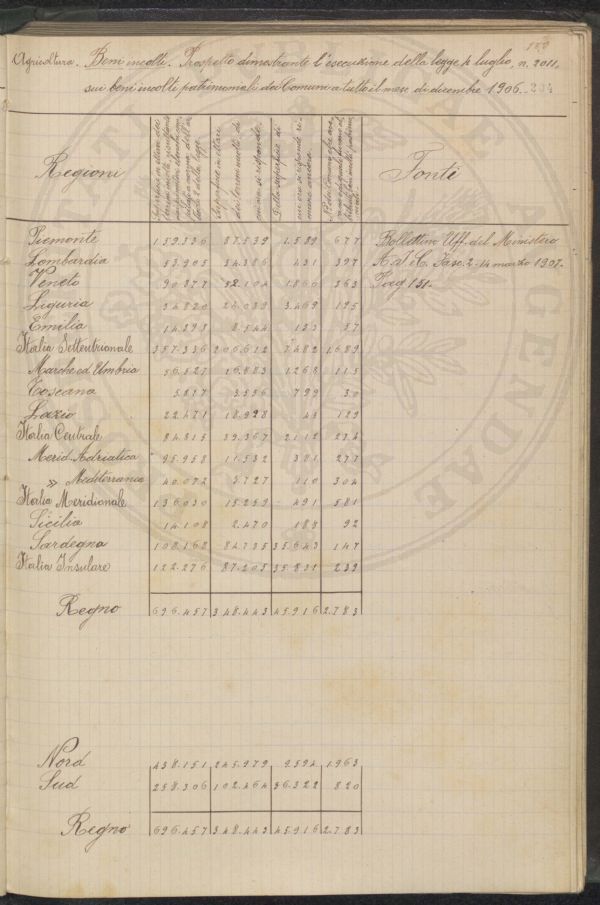 Agricoltura. Beni incolti. Prospetto dimostrante l'esecuzione della legge 4 luglio, n. 2011,
sui beni incolti patrimoniali dei Comuni a tutto il mese di dicembre 1906.
Regioni Superficie in ettari di cui ancora si risponde Fonti
Piemonte 159.336 87.539 1.589 677 Bollettino Uff. del Ministero
Lombardia 53.905 54.386 431 397 A. I. e C. Fasc. 2 - 14 marzo 1907.
Veneto 90.877 52.104 1.866 363 Pag 151.
Liguria 34.820 24.039 3.469 195
Emilia 14.393 8.544 133 57
Italia Settentrionale 357.336 206.612 7.482 1.689
Marche ed Umbria 56.527 16.883 1.268 115
Toscana 5.817 3.556 799 30
Lazio 22.471 18.928 45 129
Italia Centrale 84.815 39.367 2.112 274
Merid. Adriatica 95.958 11.532 381 277
» Mediterranea 40.072 3.727 110 304
Italia Meridionale 136.030 15.259 491 581
Sicilia 14.108 2.470 188 92
Sardegna 108.168 84.735 35.643 147
Italia Insulare 122.276 87.205 35.831 239
Regno 696.457 348.443 45.916 2.783
Nord 438.151 245.979 9.594 1.963
Sud 258.306 102.464 36.322 820
Regno 696.457 348.443 45.916 2.783